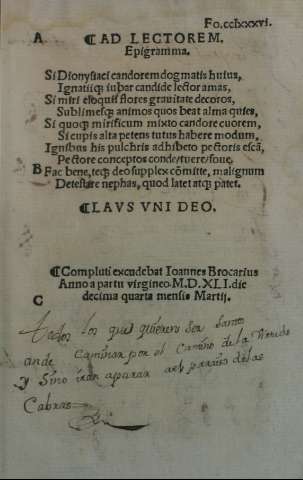 Fo.cclxxxvi.
A ¶AD LECTOREM.
Epigramma.
Si Dionysiaci candorem dogmatis huius,
Ignatiiq; iubar candide lector amas,
Si miri eloquii flores grauitate decoros,
Sublimesq; animos quos beat alma quies,
Si quoq; mirificum mixto candore cuorem,
Si cupis alta petens tutus habere modum,
Ignibus his pulchris adhibeto pectoris escã,
Pectore conceptos conde/tuere/foue.
B Fac bene, teq; deo supplex cõmitte, malignum
Detestare nephas, quod latet atq; patet.
¶LAVS VNI DEO.
¶Compluti excudebat Ioannes Brocarius
Anno a partu virgineo. M.D.XLI. die
decima quarta mensis Martij.
C
todos los que quieren ser santos
ande caminar por el camino de la
y sino iran aparar al paraiso de las
Cabras